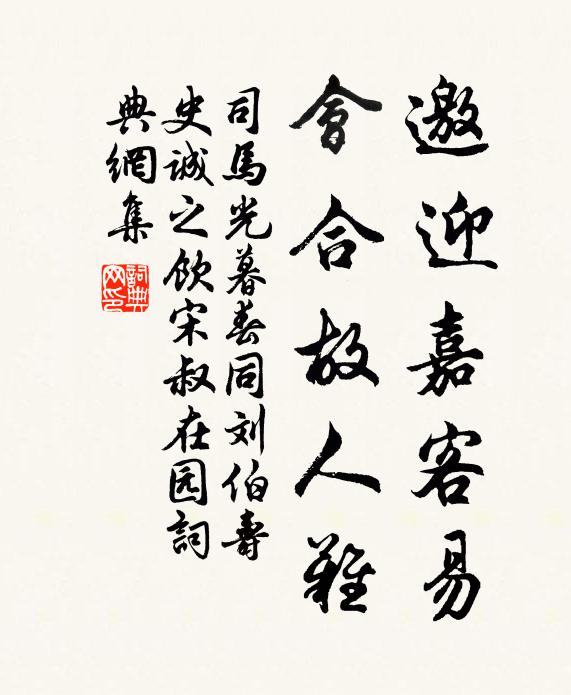 邀迎嘉客易
會合故人難
司馬光暮春同刘伯壽
史誠之飲宋叔在园詞
典網集
詞典网印